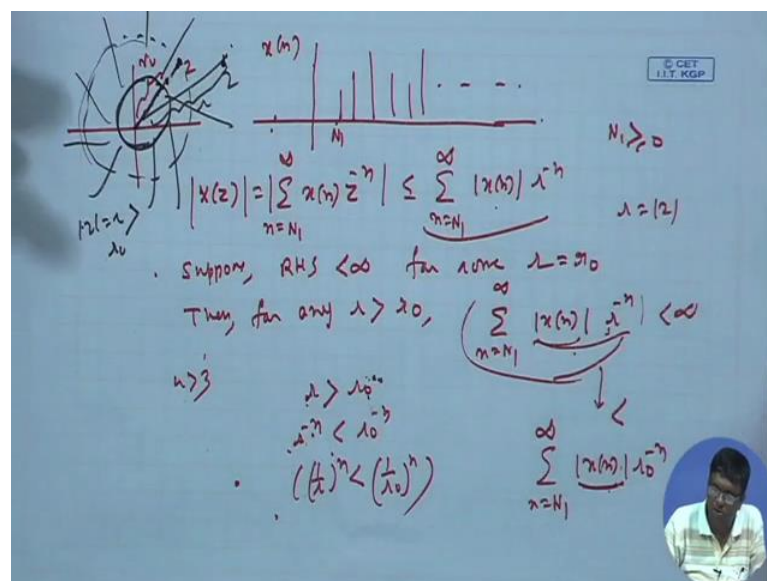 x(n)
© CET
I.I.T. KGP
N₁
N₁ ≥ 0
|X(z)| = |∑_{n=N₁}^{∞} x(n) z^{-n}| ≤ ∑_{n=N₁}^{∞} |x(n)| r^{-n}
r = |z|
|z| = r > r₀
Suppose, RHS < ∞ for some r = r₀
Then, for any r > r₀, (∑_{n=N₁}^{∞} |x(n)| r^{-n}) < ∞
r > r₀
r^{-n} < r₀^{-n}
((1/r)^n < (1/r₀)^n)
<
∑_{n=N₁}^{∞} |x(n)| r₀^{-n}